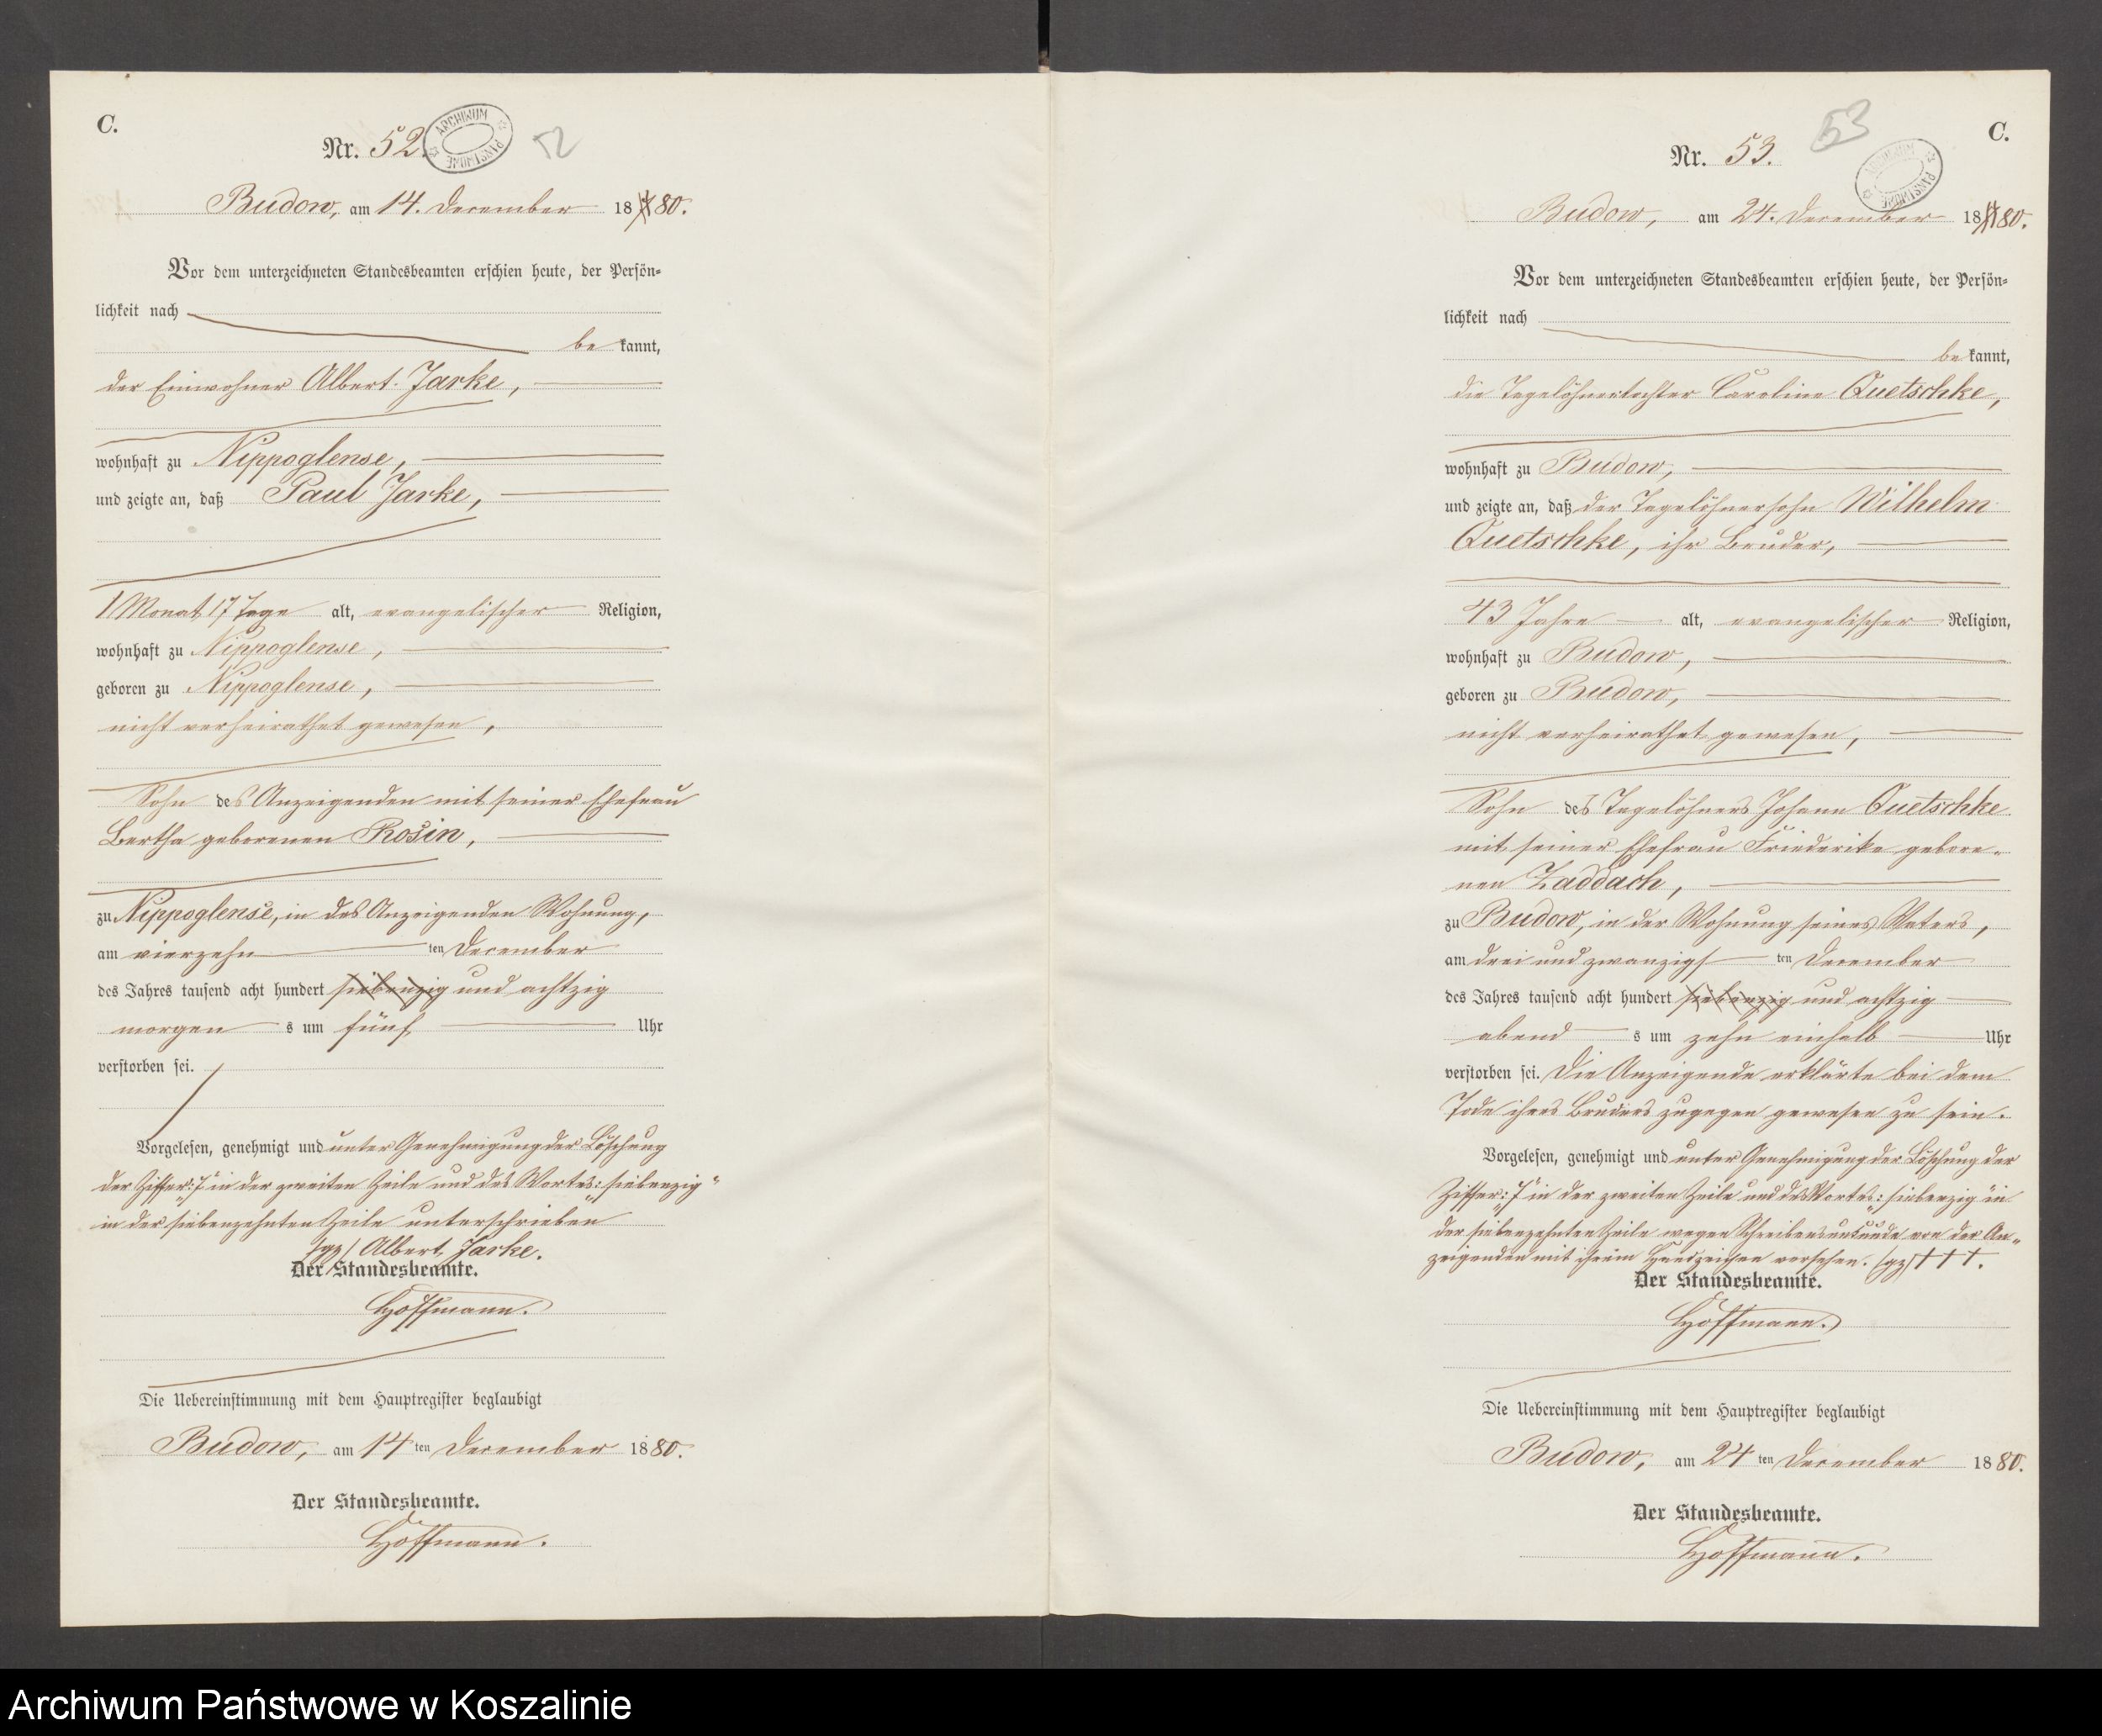 C.
Nr. 52.
ARCHIWUM PAŃSTWOWE
52
Budow, am 14. December 1880.
Vor dem unterzeichneten Standesbeamten erschien heute, der Persön-
lichkeit nach
be kannt,
der Einwohner Albert Jarke,
wohnhaft zu Nippoglense,
und zeigte an, daß Paul Jarke,
1 Monat 17 Tage alt, evangelischer Religion,
wohnhaft zu Nippoglense,
geboren zu Nippoglense,
nicht verheirathet gewesen,
Sohn des Anzeigenden mit seiner Ehefrau
Bertha geborenen Rosin,
zu Nippoglense, in des Anzeigenden Wohnung,
am vierzehn ten December
des Jahres tausend acht hundert siebenzig und achtzig
morgen s um fünf Uhr
verstorben sei.
Vorgelesen, genehmigt und unter Genehmigung der Löschung
der Ziffer: „7" in der zweiten Zeile und des Wortes: „siebenzig"
in der siebenzehnten Zeile unterschrieben
/gz/ Albert Jarke.
Der Standesbeamte.
Hoffmann.
Die Uebereinstimmung mit dem Hauptregister beglaubigt
Budow, am 14 ten December 1880.
Der Standesbeamte.
Hoffmann.
C.
Nr. 53.
53
ARCHIWUM PAŃSTWOWE
Budow, am 24. December 1880.
Vor dem unterzeichneten Standesbeamten erschien heute, der Persön-
lichkeit nach
be kannt,
die Tagelöhnertochter Caroline Quetschke,
wohnhaft zu Budow,
und zeigte an, daß der Tagelöhnersohn Wilhelm
Quetschke, ihr Bruder,
43 Jahre alt, evangelischer Religion,
wohnhaft zu Budow,
geboren zu Budow,
nicht verheirathet gewesen,
Sohn des Tagelöhners Johann Quetschke
mit seiner Ehefrau Friederike gebore-
nen Zaddach,
zu Budow, in der Wohnung seines Vaters,
am drei und zwanzigs ten December
des Jahres tausend acht hundert siebenzig und achtzig
abend s um zehn einhalb Uhr
verstorben sei. Die Anzeigende erklärte bei dem
Tode ihres Bruders zugegen gewesen zu sein.
Vorgelesen, genehmigt und unter Genehmigung der Löschung der
Ziffer: „7" in der zweiten Zeile und des Wortes: „siebenzig" in
der siebenzehnten Zeile wegen Schreibensunkunde von der An-
zeigenden mit ihrem Handzeichen versehen. /gz/ † † †.
Der Standesbeamte.
Hoffmann.
Die Uebereinstimmung mit dem Hauptregister beglaubigt
Budow, am 24 ten December 1880.
Der Standesbeamte.
Hoffmann.
Archiwum Państwowe w Koszalinie